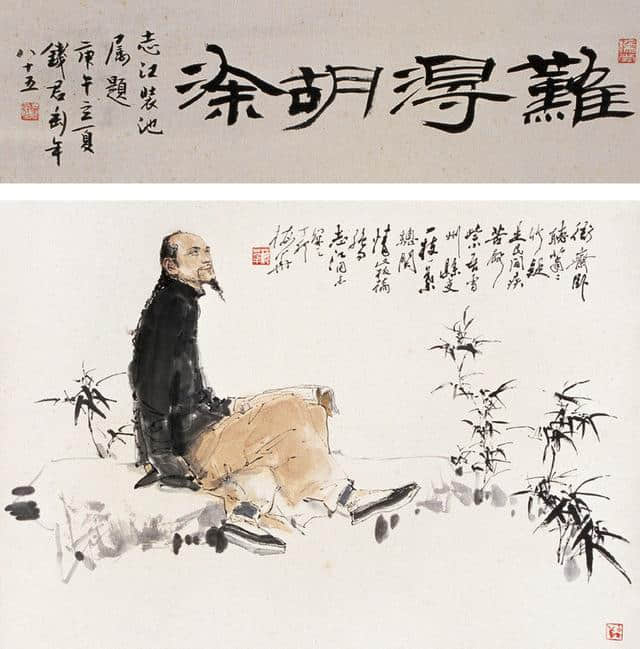 難得胡涂
志江裝池
属題
庚午立夏
錢君匋年
八十五
衙齋卧
聽蕭〻
竹疑
是民間疾
苦聲
些小吾曹
州縣吏
一枝一葉
總關
情 板橋
詩
志江同志
丁卯